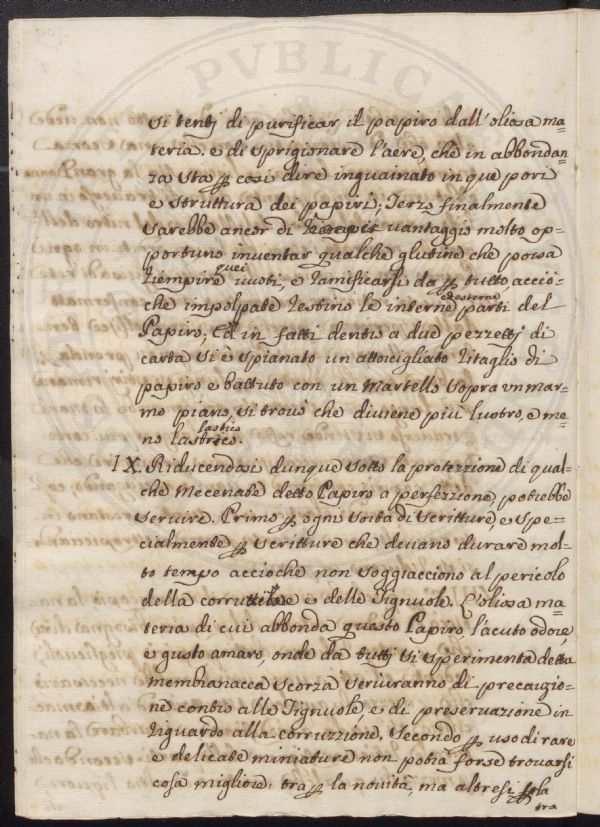 si tentj di purificar il papiro dall'oliosa ma=
teria. e di sprigionare l'aere, che in abbondan=
za sta p così dire inguainato in que pori
e struttura dei papiri; Terzo finalmente
sarebbe ancor di vantaggio molto op=
portuno inventar qualche glutine che possa
riempire quei vuoti, e ramificarsi da p tutto, acciò=
che impolpate restino le interne ed esterne parti del
Papiro; Ed in fatti dentro a due pezzettj di
carta si è spianato un attorcigliato ritaglio di
papiro e battuto con un Martello sopra vn mar=
mo piano, si trovò che diviene più lustro, e me=
no lastrico.
lastico
IX. Riducendosi dunque sotto la protezzione di qual=
che Mecenate detto Papiro a perfezzione, potrebbe
servire. Primo p ogni sorta di scritture, e spe=
cialmente p scritture che devano durare mol=
to tempo accioche non soggiacciono al pericolo
della e delle Tignuole. L'oliosa ma=
teria di cui abbonda questo Papiro, l'acuto odore,
e gusto amaro, onde da tuttj si sperimenta detta
membranacea scorza serviranno di precauzio=
ne contro alle Tignuole e di preservazione in
riguardo alla corruzzione. Secondo p uso di rare
e delicate miniature non potrà forse trovarsi
cosa migliore: tra p la novità, ma altresì p la
tra